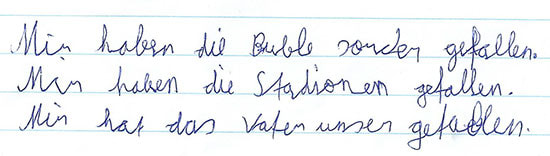 Mir haben die Buble sonder gefallen.
Mir haben die Stadionen gefallen.
Mir hat das Vater unser gefallen.